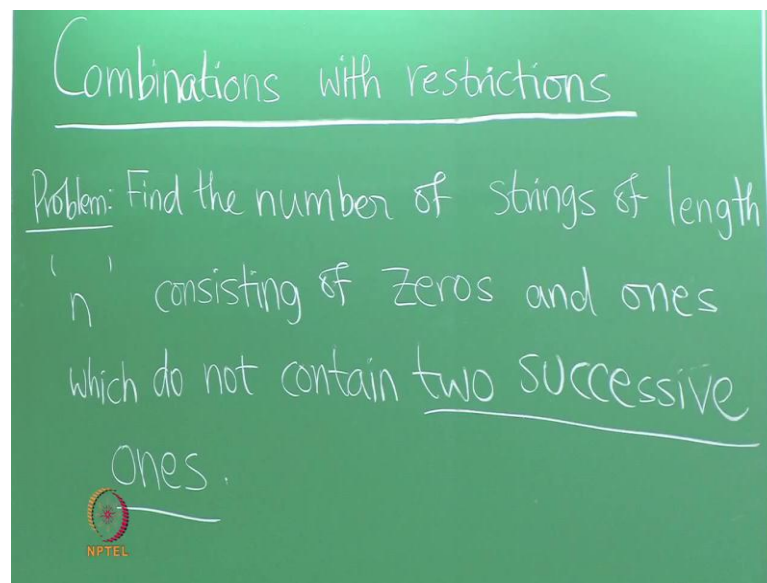 Combinations with restrictions
Problem: Find the number of strings of length
'n' consisting of zeros and ones
which do not contain two successive
ones.
NPTEL